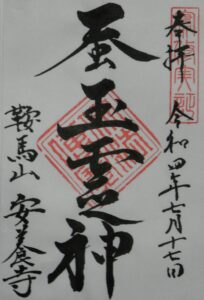 奉拝 令和四年七月十七日
蚕玉霊神
鞍馬山 安養寺